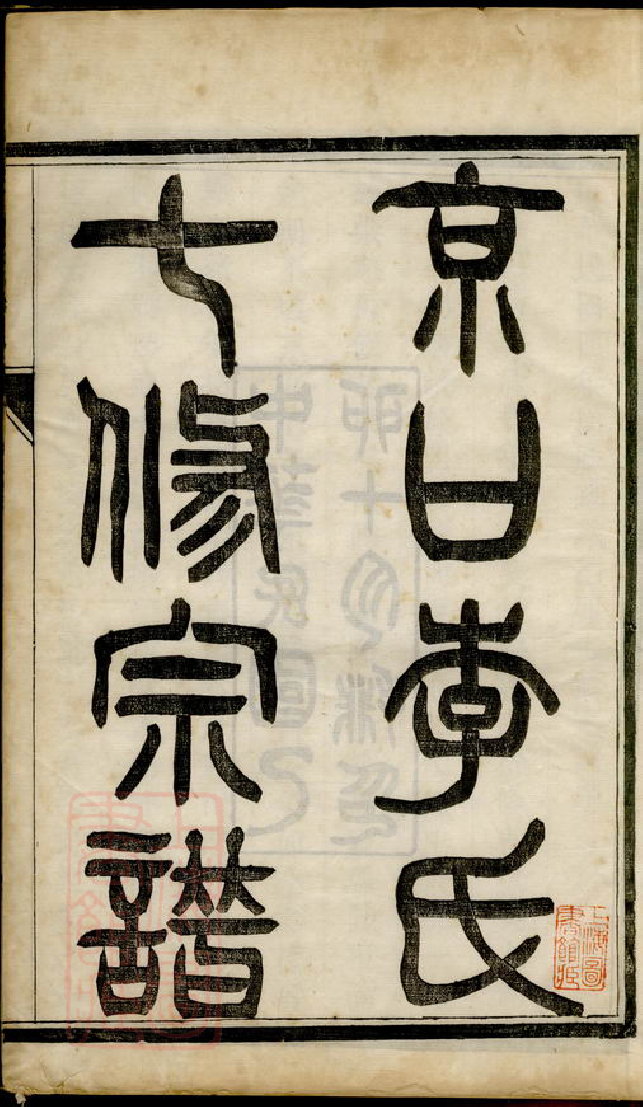 京口李氏
七修宗譜
上海圖書館藏